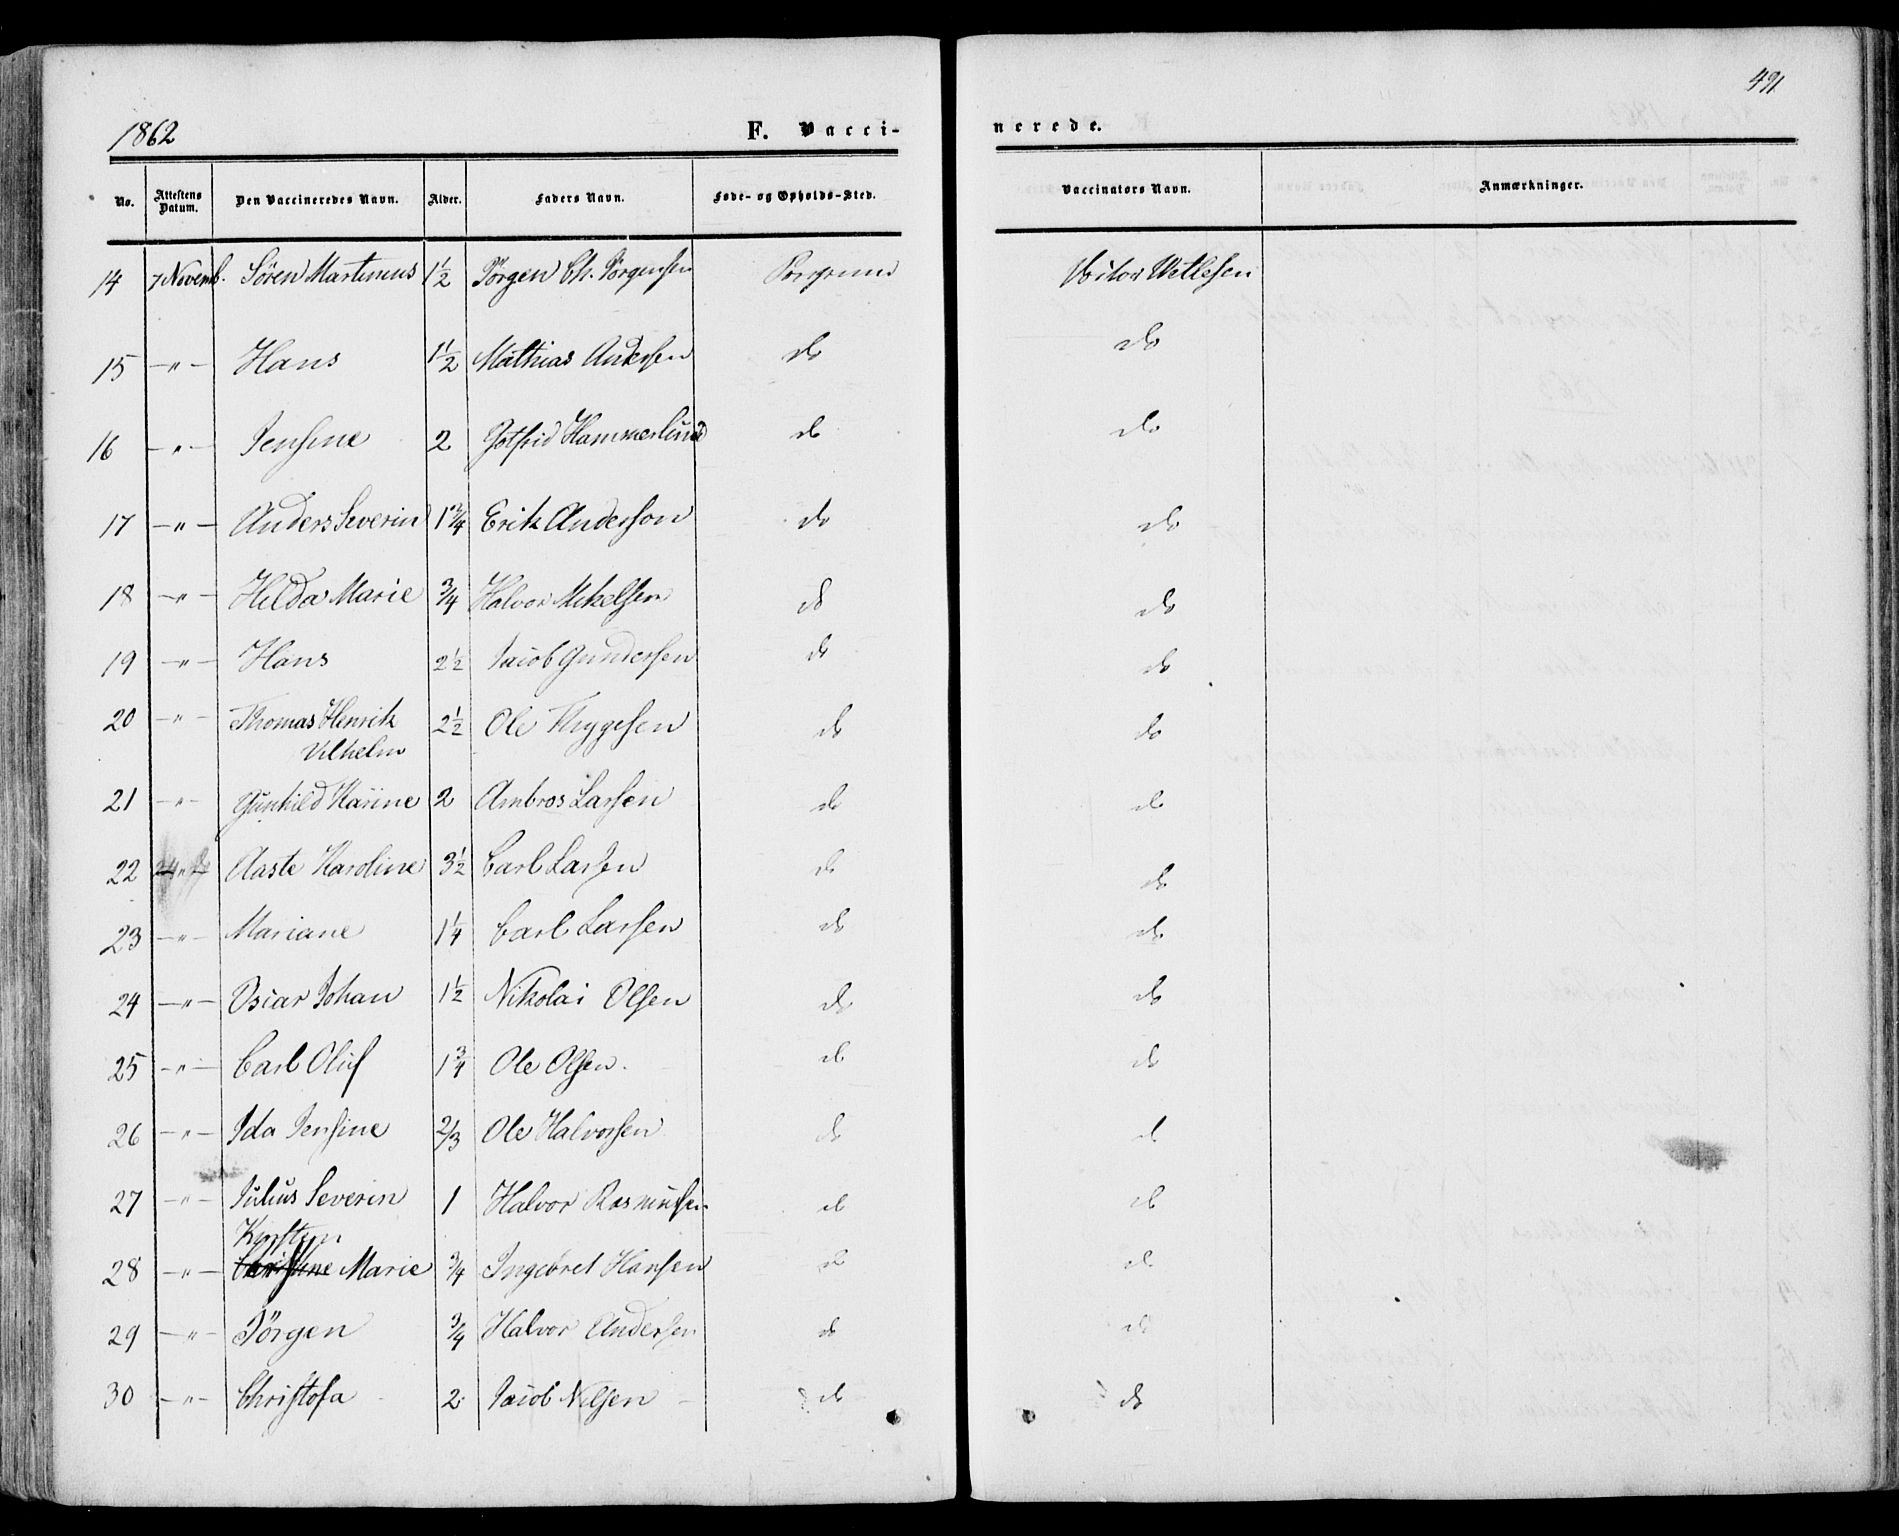 491
1862 F. Vacci- nerede.
No. Attestens Datum. Den Vaccineredes Navn. Alder. Faders Navn. Føde- og Opholds-Sted. Vaccinators Navn. Anmærkninger.
14 7 Novemb. Sören Martinius 1½ Jörgen Ch. Jörgensen Porsgrund Vetlesen
15 —"— Hans 1½ Mathias Andersen do do
16 —"— Jensine 2 Gotfrid Hammerlund do do
17 —"— Anders Severin 1¾ Erik Anderson do do
18 —"— Hilda Marie ¾ Halvor Mikelsen do do
19 —"— Hans 2½ Jacob Gundersen do do
20 —"— Thomas Henrik 2½ Ole Thygesen do do
Vilhelm
21 —"— Gunhild Karine 2 Ambros Larsen do do
22 —"— Aaste Karoline 3½ Carl Larsen do do
23 —"— Mariane 1¼ Carl Larsen do do
24 —"— Oscar Johan 1½ Nikolai Olsen do do
25 —"— Carl Oluf 1¾ Ole Olsen. do do
26 —"— Ida Jensine 2/3 Ole Halvorsen do do
27 —"— Julius Severin 1 Halvor Rasmussen do do
Kirsten
28 —"— Christine Marie ¾ Ingebret Hansen do do
29 —"— Jörgen ¾ Halvor Andersen do do
30 —"— Christofa 2 Jacob Nilsen do do